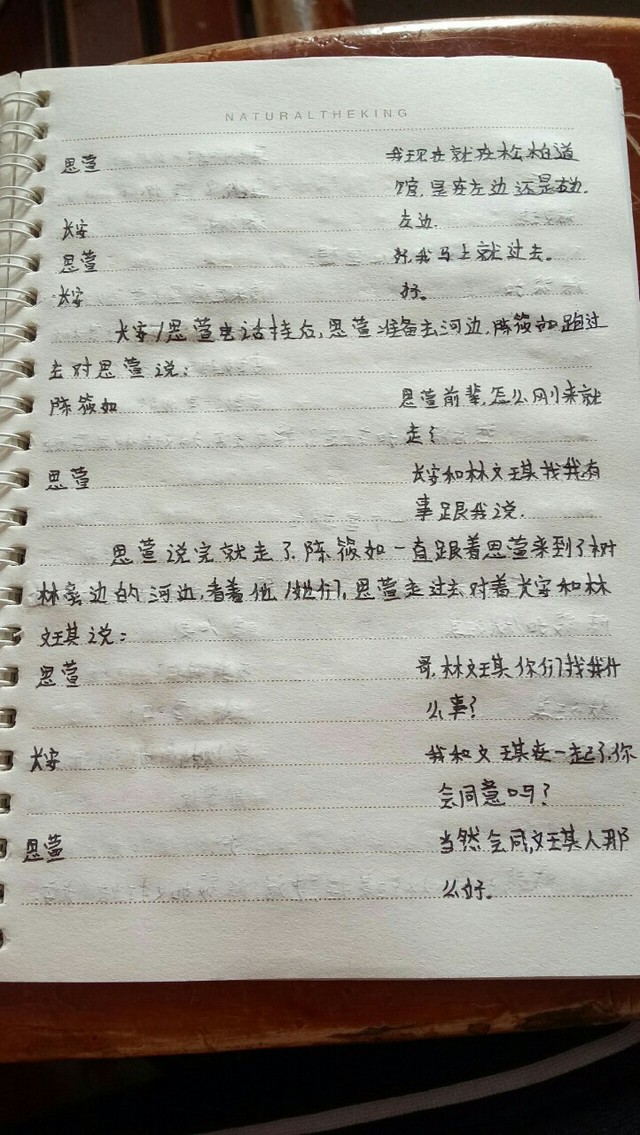 NATURALTHEKING
思萱 我现在就在松柏道
馆,是在左边还是右边.
长安 左边.
思萱 好,我马上就过去。
长安 好。
长安/思萱电话挂后,思萱准备去河边,陈筱如跑过
去对思萱说:
陈筱如 思萱前辈,怎么刚来就
走?
思萱 长安和林文琪找我有
事跟我说.
思萱说完就走了,陈筱如一直跟着思萱来到了树
林旁边的河边,看着他/她们,思萱走过去对着长安和林
文琪说:
思萱 哥,林文琪你们找我什
么事?
长安 我和文琪在一起了,你
会同意吗?
思萱 当然会同,文琪人那
么好。